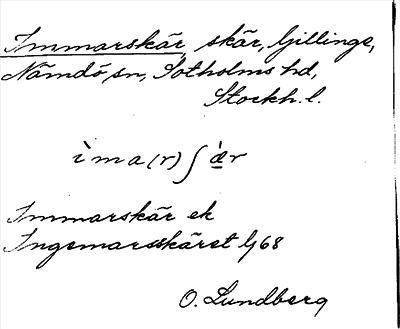 Immarskär, skär, Gillinge,
Nämdö sn, Sotholms hd,
Stockh. l.
ìma(r)ʃæ̀r
Immarskär ek
Ingemarsskäret 68
O. Lundberg